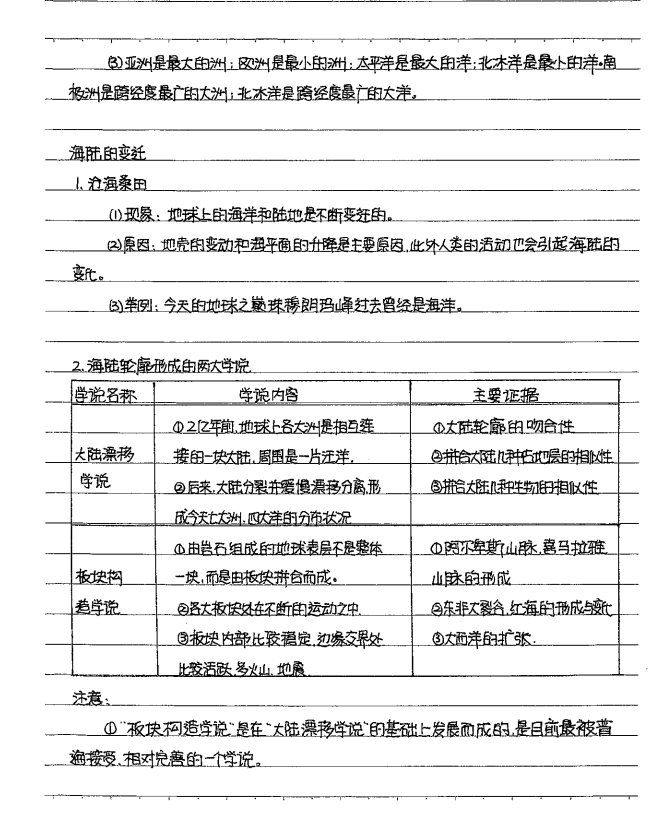 ⑶亚洲是最大的洲;欧洲是最小的洲;太平洋是最大的洋;北冰洋是最小的洋。南
极洲是跨经度最广的大洲;北冰洋是跨经度最广的大洋。
海陆的变迁
1.沧海桑田
⑴现象:地球上的海洋和陆地是不断变迁的。
⑵原因:地壳的变动和海平面的升降是主要原因,此外人类的活动也会引起海陆的
变化。
⑶举例:今天的地球之巅珠穆朗玛峰过去曾经是海洋。
2.海陆轮廓形成的两大学说
学说名称 学说内容 主要证据
①2亿年前,地球上各大洲是相互连 ①大陆轮廓的吻合性
大陆漂移 接的一块大陆,周围是一片汪洋. ②拼合大陆几种古地层的相似性
学说 ②后来,大陆分裂并缓慢漂移分离,形 ③拼合大陆几种生物的相似性
成今天七大洲、四大洋的分布状况
①由岩石组成的地球表层不是整体 ①阿尔卑斯山脉、喜马拉雅
板块构 一块,而是由板块拼合而成。 山脉的形成
造学说 ②各大板块处在不断的运动之中 ②东非大裂谷、红海的形成与变化
③板块内部比较稳定,边缘交界处 ③大西洋的扩张.
比较活跃,多火山、地震
注意:
①"板块构造学说"是在"大陆漂移学说"的基础上发展而成的,是目前最被普
遍接受、相对完善的一个学说。